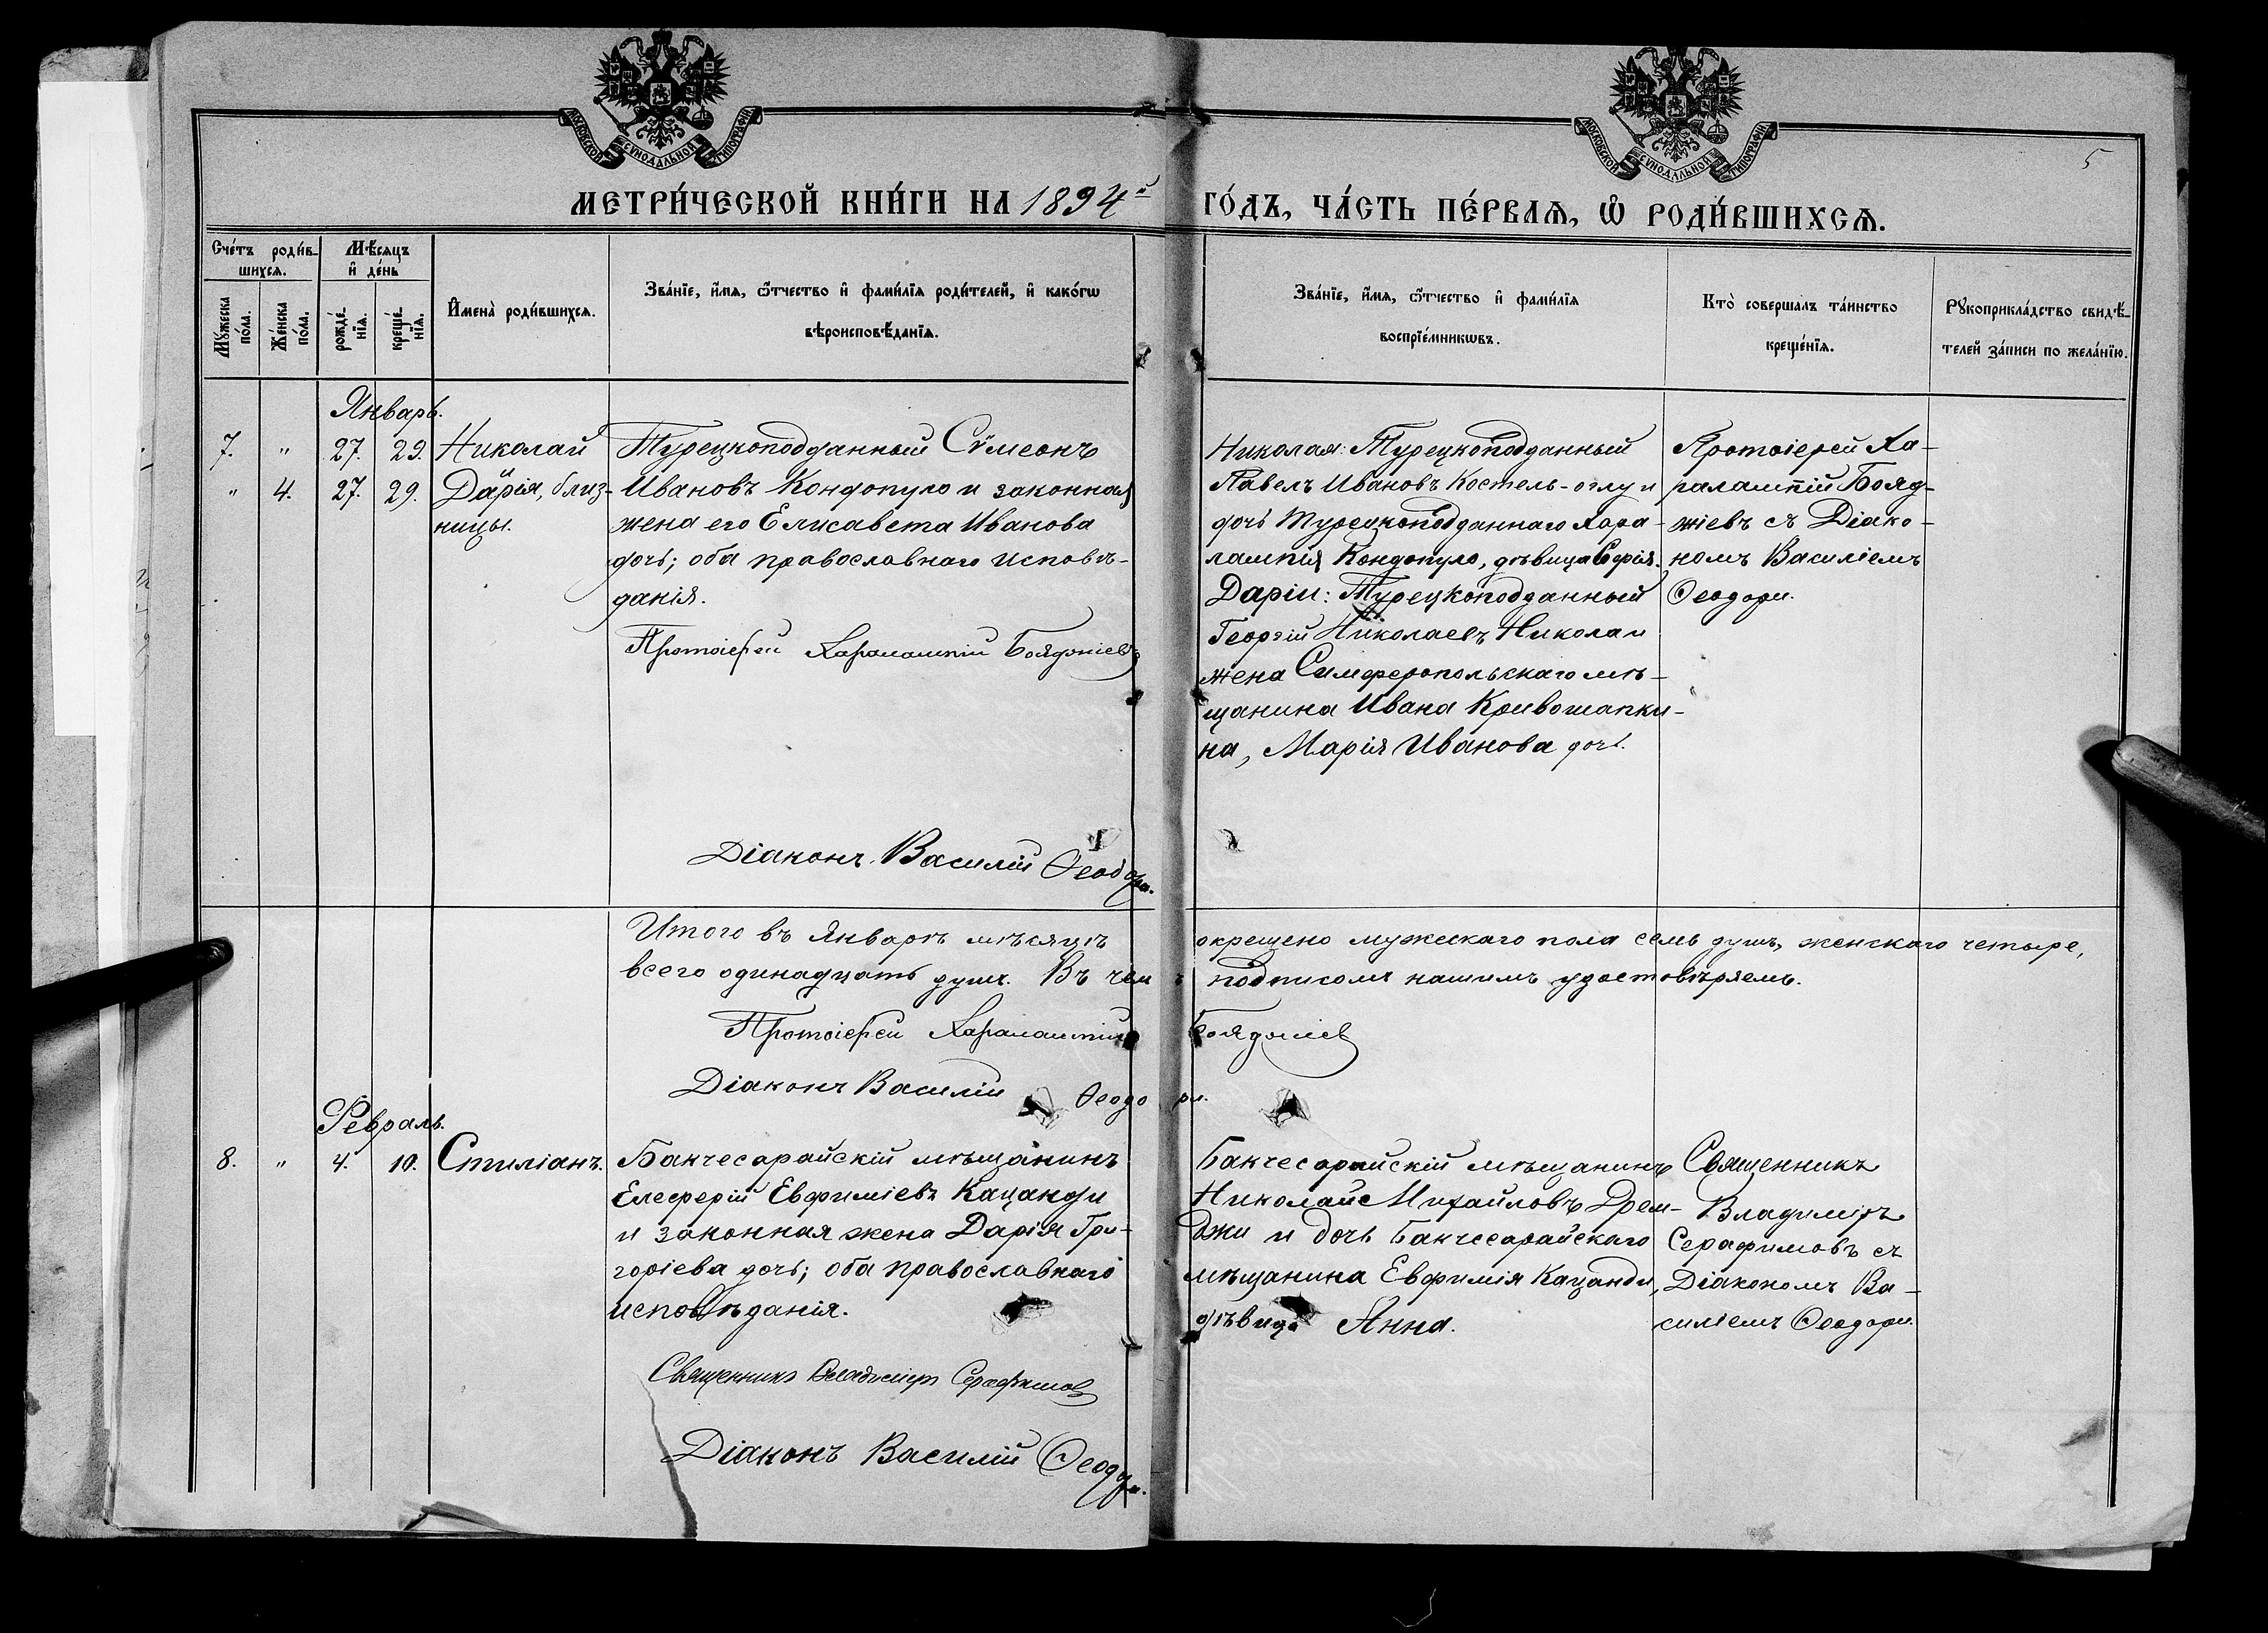 МОСКОВСКОЙ СѴНОДАЛЬНОЙ ТИПОГРАФІИ
МОСКОВСКОЙ СѴНОДАЛЬНОЙ ТИПОГРАФІИ
5
МЕТРИ́ЧЕСКОЙ КНИ́ГИ НА 1894й ГО́ДЪ, ЧА́СТЬ ПЕ́РВАѦ, Ѡ҆ РОДИ́ВШИХСѦ.
Сче́тъ роди́в-
шихсѧ.
Мѣ́сѧцъ
и҆ де́нь
Мꙋ́жеска
по́ла.
Же́нска
по́ла.
рожде́-
нїѧ.
креще́-
нїѧ.
И҆мена̀ роди́вшихсѧ.
Зва́нїе, и҆́мѧ, ѻ҆́тчество и҆ фами́лїѧ роди́телей, и҆ како́гѡ
вѣроисповѣ́данїѧ.
Зва́нїе, и҆́мѧ, ѻ҆́тчество и҆ фами́лїѧ
воспрїе́мникѡвъ.
Кто̀ соверша́лъ та́инство
креще́нїѧ.
Рꙋкоприкла́дство свидѣ́-
телей за́писи по жела́нїю.
Январь.
7. " 27. 29. Николай
" 4. 27. 29. Дарія, близ-
ницы.
Турецкоподданный Сѵмеонъ
Ивановъ Кондопуло и законная
жена его Елисавета Иванова
дочь; оба православнаго исповѣ-
данія.
Протоіерей Харалампій Бояджіевъ
Діаконъ Василій Ѳеодори.
Николая: Турецкоподданный
Павелъ Ивановъ Костель-оглу и
дочь Турецкоподданнаго Хара-
лампія Кондопуло, дѣвица Софія.
Даріи: Турецкоподданный
Георгій Николаевъ Николаи
жена Симферопольскаго мѣ-
щанина Ивана Кривошапки-
на, Марія Иванова дочь.
Протоіерей Ха-
ралампій Бояд-
жіевъ съ Діако-
номъ Василіемъ
Ѳеодори.
Итого въ Январѣ мѣсяцѣ окрещено мужескаго пола семь душъ, женскаго четыре,
всего одинадцать душъ. Въ чемъ подписомъ нашимъ удостовѣряемъ.
Протоіерей Харалампій Бояджіев
Діаконъ Василій Ѳеодори.
Февраль.
8. " 4. 10. Стиліанъ.
Бакчесарайскій мѣщанинъ
Елеѳерій Евфиміевъ Кацанди
и законная жена Дарія Гри-
горіева дочь; оба православнаго
исповѣданія.
Священникъ Владиміръ Серафимов
Діаконъ Василій Ѳеодори.
Бакчесарайскій мѣщанинъ
Николай Михайловъ Дрем-
джи и дочь Бакчесарайскаго
мѣщанина Евфимія Кацанди,
дѣвица Анна.
Священникъ
Владиміръ
Серафимовъ съ
Діакономъ Ва-
силіемъ Ѳеодори.